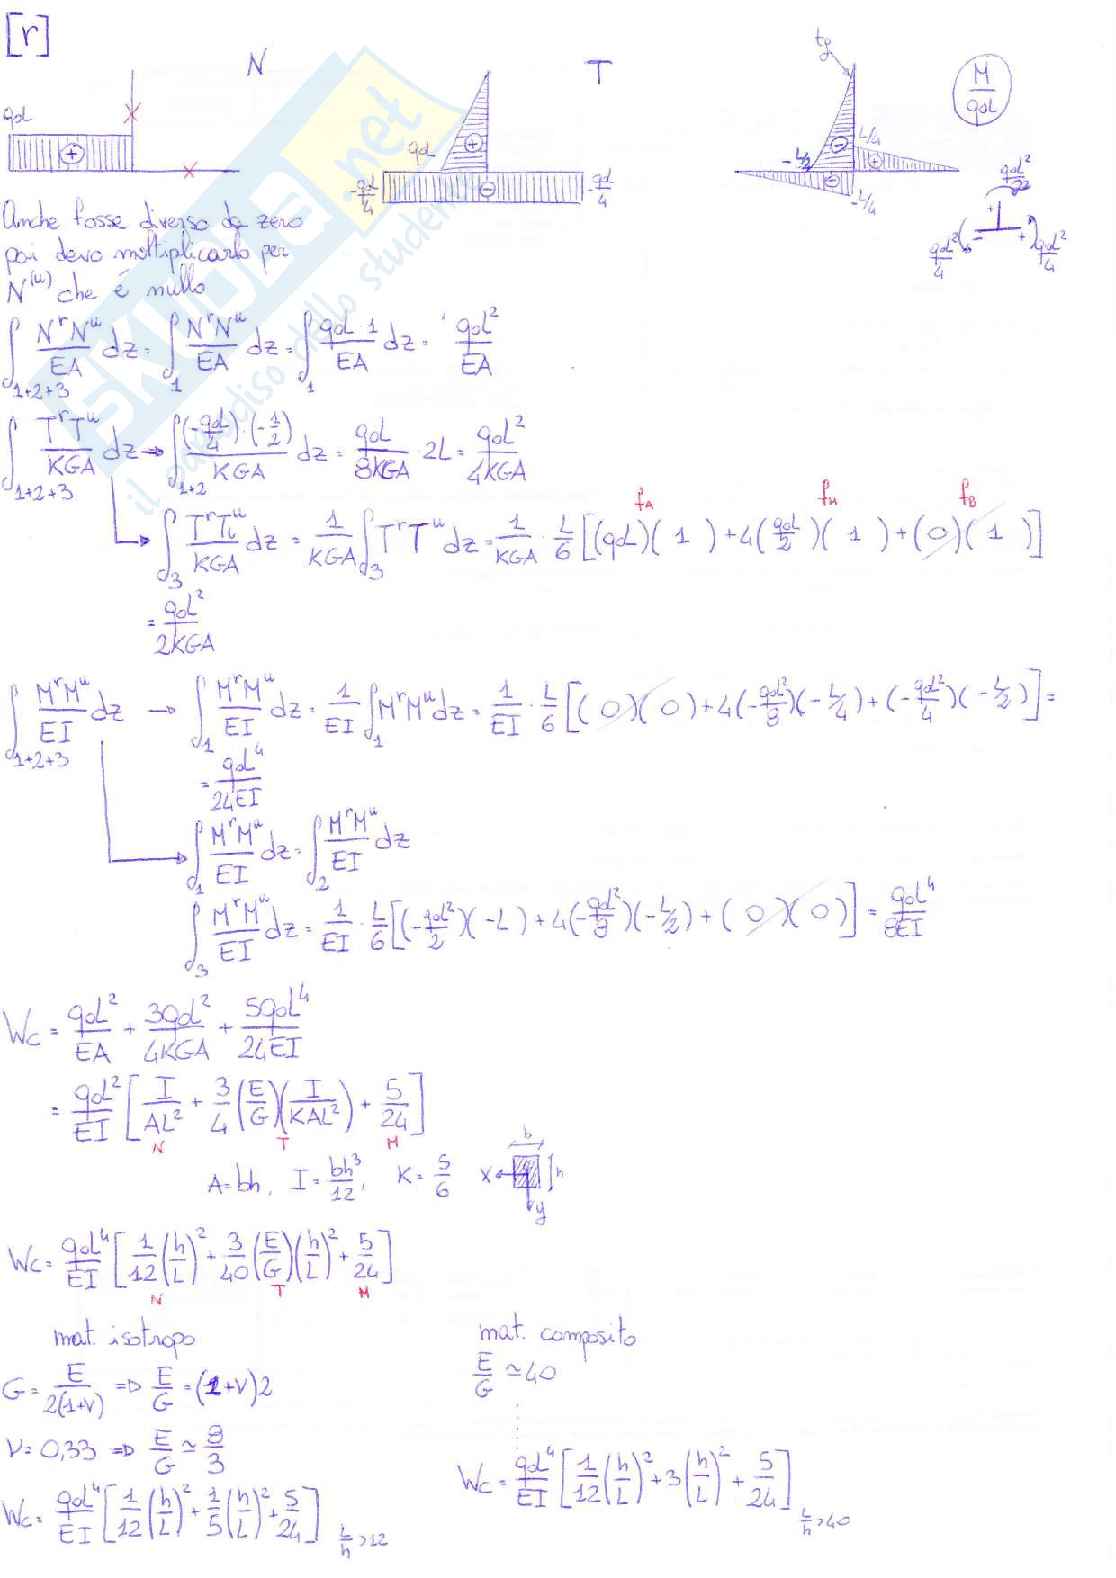 [r]
N
T
tg
M/q₀L
q₀L
+
q₀L
+
-q₀L/4
-
-q₀L/4
-L/2
-
L/4
+
-
-L/4
q₀L²/2
+
-
+
q₀L²/4
q₀L²/4
Anche fosse diverso da zero
poi devo moltiplicarlo per
N⁽ᵘ⁾ che è nullo
∫₁₊₂₊₃ NʳNᵘ/EA dz = ∫₁ NʳNᵘ/EA dz = ∫₁ q₀L 1/EA dz = q₀L²/EA
∫₁₊₂₊₃ TʳTᵘ/KGA dz → ∫₁₊₂ (-q₀L/4)·(-1/2)/KGA dz = q₀L/8KGA · 2L = q₀L²/4KGA
fA fM fB
∫₃ TʳTᵘ/KGA dz = 1/KGA ∫₃ TʳTᵘ dz = 1/KGA · L/6 [(q₀L)(1) + 4(q₀L/2)(1) + (0)(1)]
= q₀L²/2KGA
∫₁₊₂₊₃ MʳMᵘ/EI dz → ∫₁ MʳMᵘ/EI dz = 1/EI ∫₁ MʳMᵘ dz = 1/EI · L/6 [(0)(0) + 4(-q₀L²/8)(-L/4) + (-q₀L²/4)(-L/2)] =
= q₀L⁴/24EI
∫₁ MʳMᵘ/EI dz = ∫₂ MʳMᵘ/EI dz
∫₃ MʳMᵘ/EI dz = 1/EI · L/6 [(-q₀L²/2)(-L) + 4(-q₀L²/8)(-L/2) + (0)(0)] = q₀L⁴/8EI
Wc = q₀L²/EA + 3q₀L²/4KGA + 5q₀L⁴/24EI
= q₀L²/EI [I/AL² + 3/4 (E/G)(I/KAL²) + 5/24]
N T M
A=bh, I = bh³/12, K = 5/6
b
x
h
y
Wc = q₀L⁴/EI [1/12 (h/L)² + 3/40 (E/G)(h/L)² + 5/24]
N T M
mat. isotropo
G = E/2(1+ν) ⇒ E/G = (1+ν)2
ν = 0,33 ⇒ E/G ≃ 8/3
Wc = q₀L⁴/EI [1/12 (h/L)² + 1/5 (h/L)² + 5/24] L/h > 12
mat. composito
E/G ≃ 40
Wc = q₀L⁴/EI [1/12 (h/L)² + 3 (h/L)² + 5/24] L/h > 40
SKUOLA.net
il paradiso dello studente